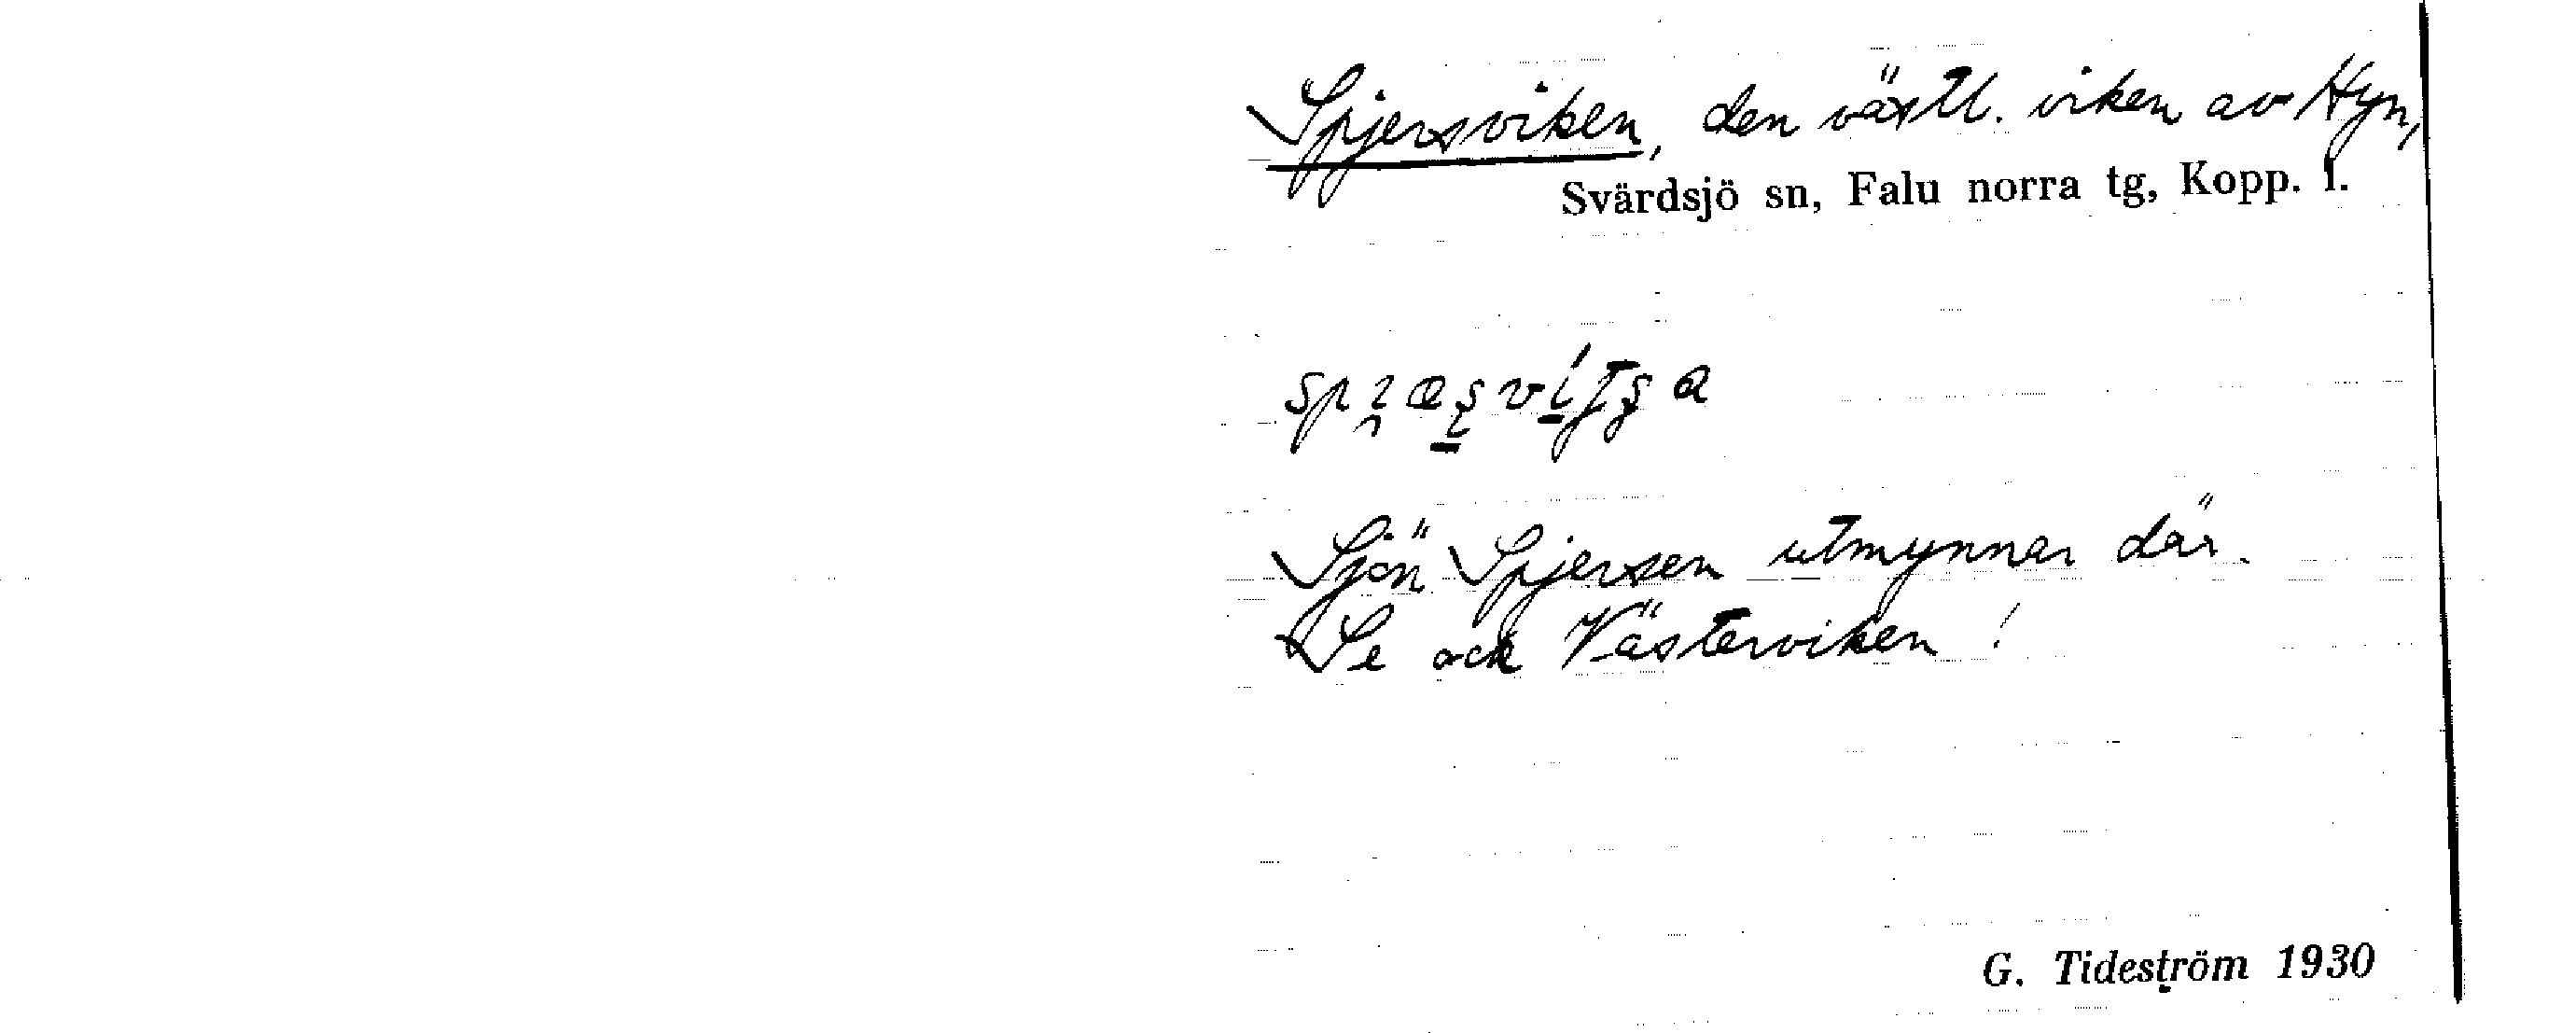 Spjersviken, den västl. viken av Hyn,
Svärdsjö sn, Falu norra tg, Kopp. l.
Sjön Spjersen utmynnar där.
Se ock Västerviken!
G. Tideström 1930